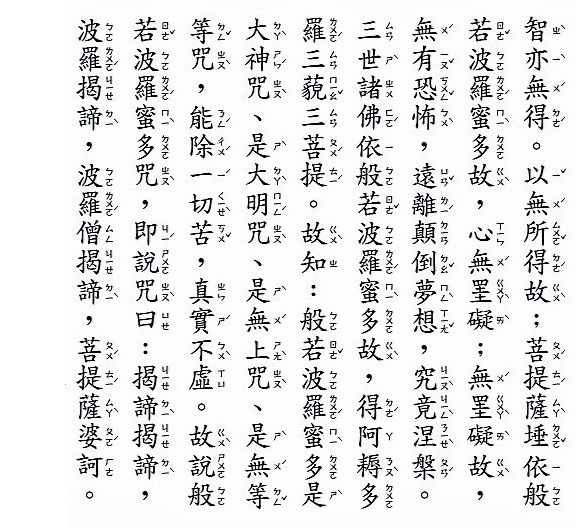 智亦無得。以無所得故；菩提薩埵依般
若波羅蜜多故，心無罣礙；無罣礙故，
無有恐怖，遠離顛倒夢想，究竟涅槃。
三世諸佛依般若波羅蜜多故，得阿耨多
羅三藐三菩提。故知：般若波羅蜜多是
大神咒、是大明咒、是無上咒、是無等
等咒，能除一切苦，真實不虛。故說般
若波羅蜜多咒，即說咒曰：揭諦揭諦，
波羅揭諦，波羅僧揭諦，菩提薩婆訶。